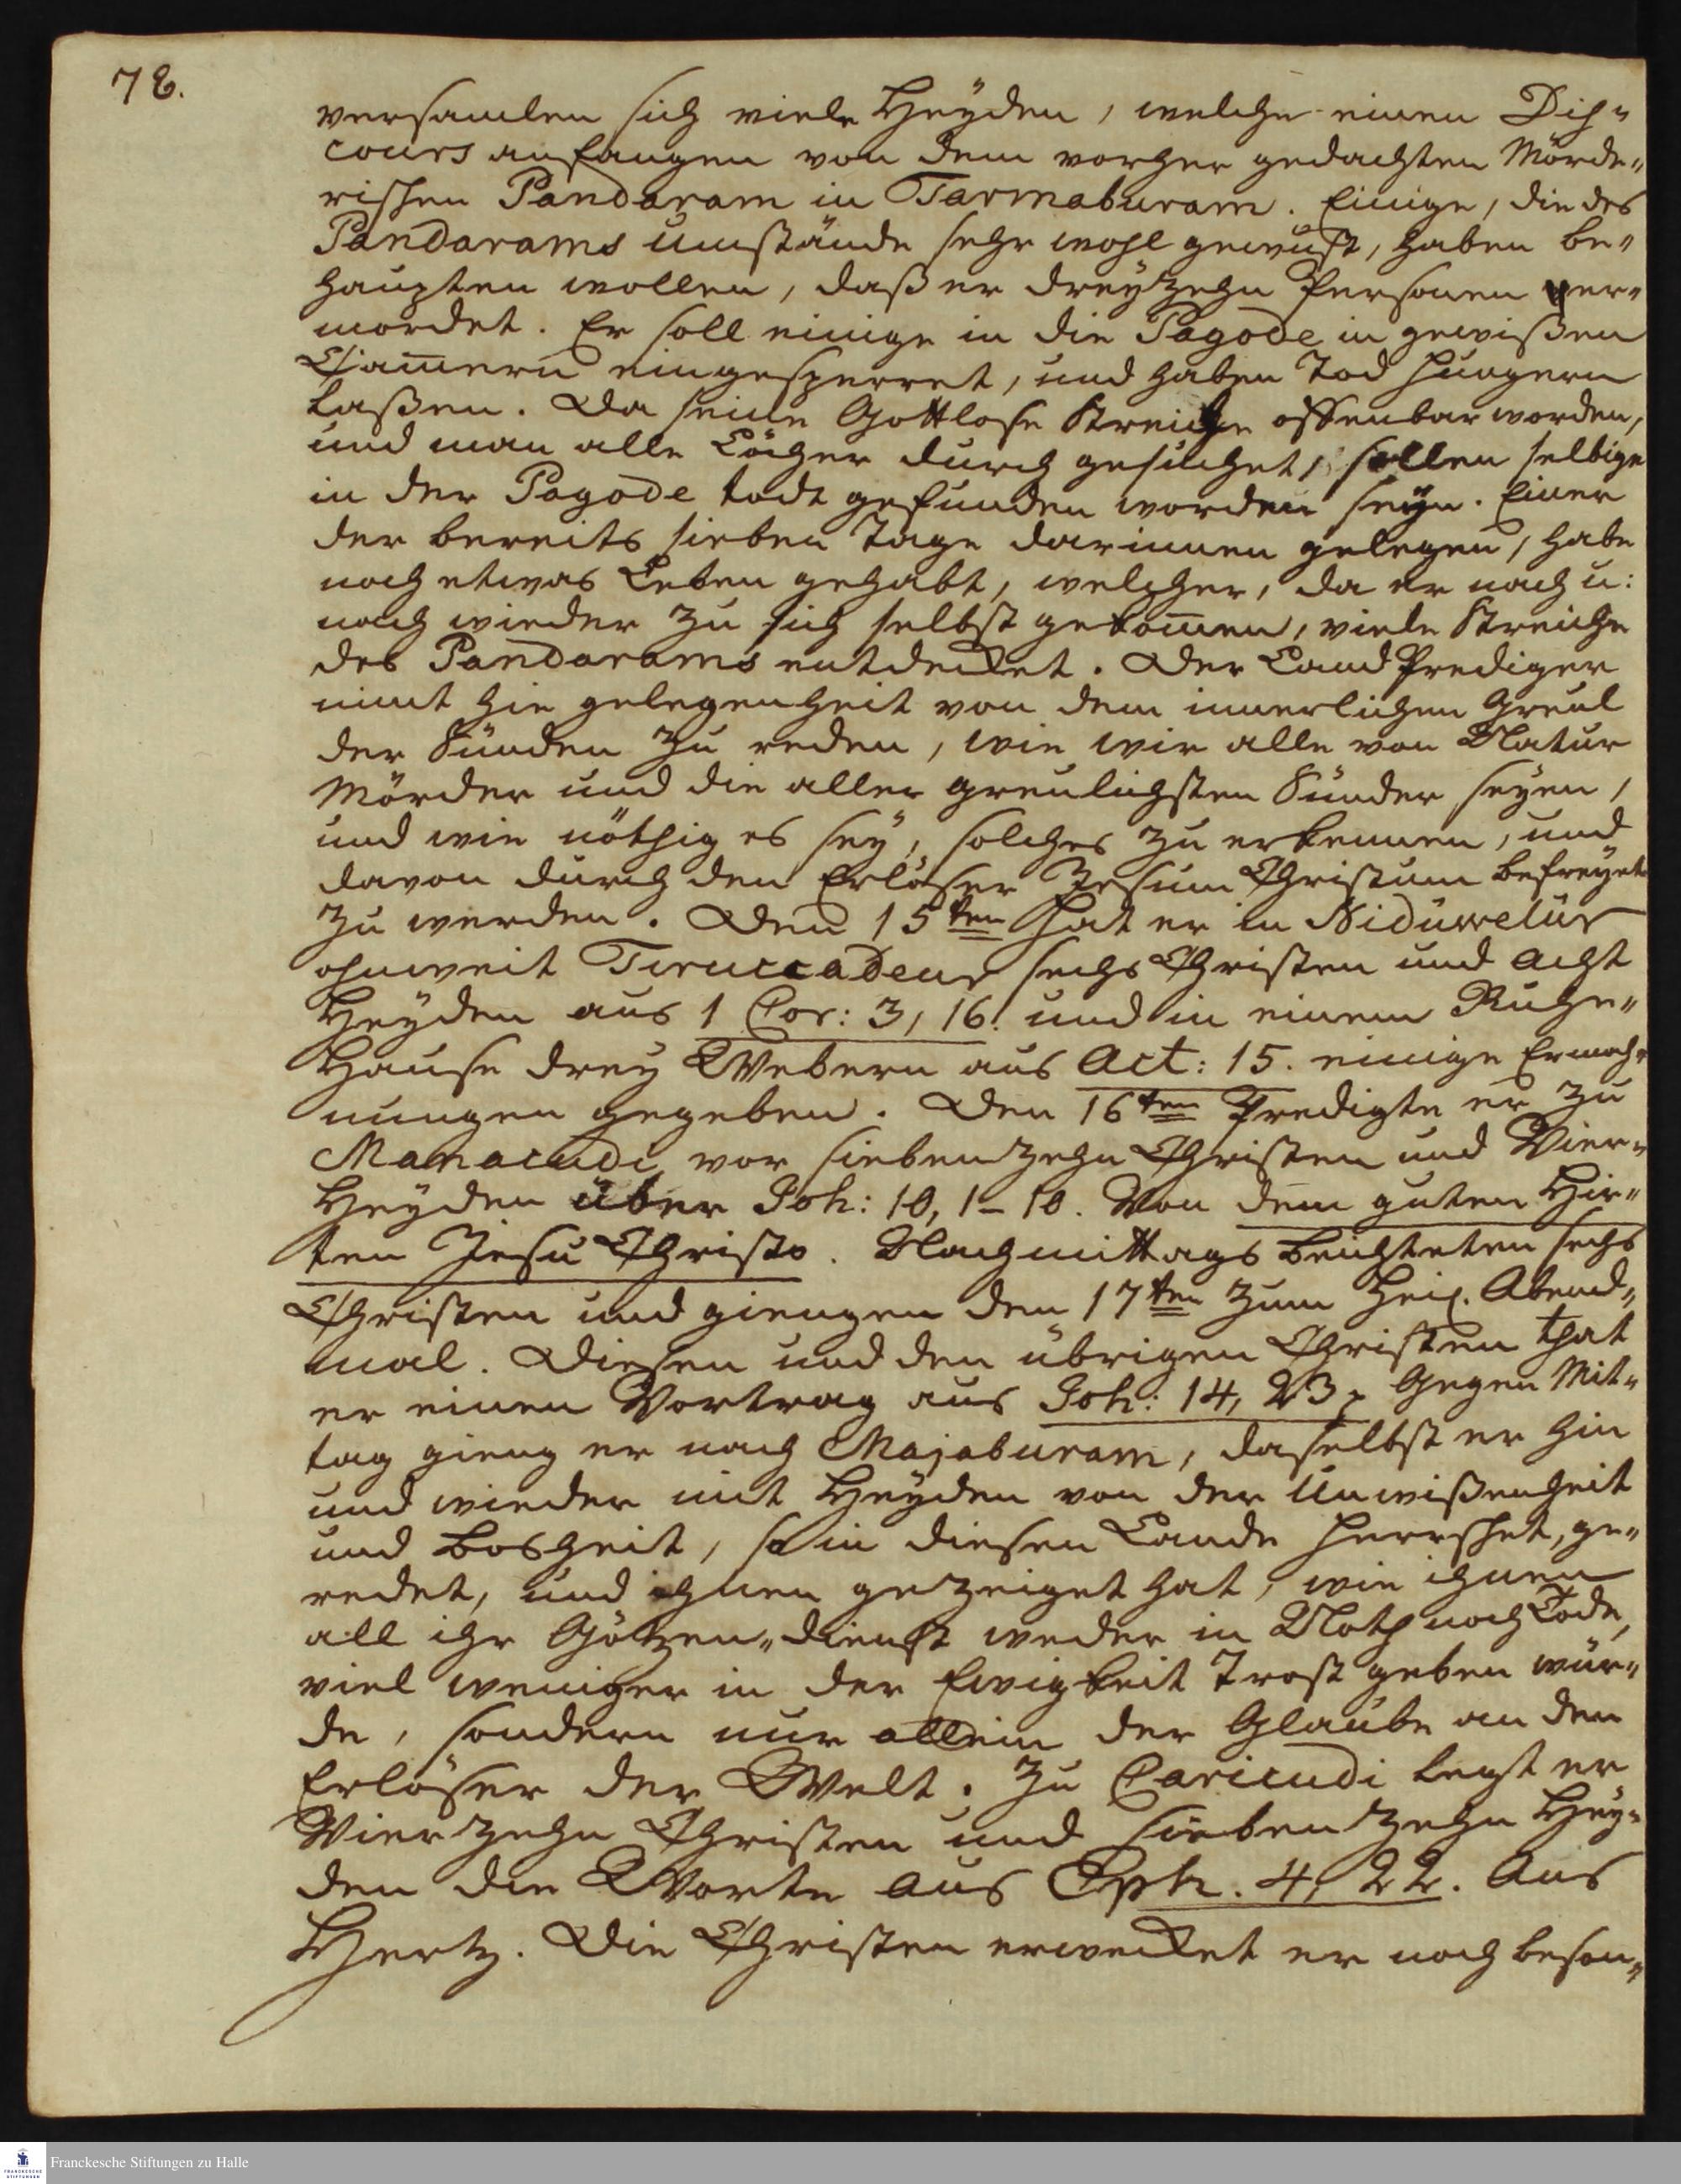 78.
versamlen sich viele Heyden, welche einen Dis-
cours anfangen von dem vorher gedachten Mörde-
rischen Pandaram in Tarmaburam. Einige, die des
Pandarams umstände sehr wohl gewust, haben be-
haupten wollen, daß er dreyzehn Personen ver-
mordet. Er soll einige in die Pagode in gewißen
Cam̄ern eingesperret, und haben Tod hungern
laßen. Da seine Gottlose Streiche offenbar worden,
und man alle Löcher durch gesuchet, sollen selbige
in der Pagode todt gefunden worden seyn. Einer
der bereits sieben Tage darinnen gelegen, habe
noch etwas Leben gehabt, welcher, da er nach u:
nach wieder zu sich selbst gekom̄en, viele Streiche
des Pandarams entdecket. Der Land Prediger
nimt hie gelegenheit von dem innerlichen Greul
der Sünden zu reden, wie wir alle von Natur
Mörder und die aller greulichsten Sünder seyen,
und wie nöthig es sey, solches zu erkennen, und
davon durch den Erlöser Jesum Christum befreyet
zu werden. Den 15ten hat er in Niduwelur
ohnweit Tiruccadeur sechs Christen und acht
Heyden aus 1 Cor: 3, 16. und in einem Ruhe-
Hause drey Webern aus Act: 15. einige Ermah-
nungen gegeben. Den 16ten Predigte er zu
Manacudi vor siebenzehn Christen und Vier
Heyden über Joh: 10, 1–10. Von dem guten Hir-
ten Jesu Christo. Nachmittags beichteten sechs
Christen und giengen den 17ten zum Heil. Abend-
mal. Diesen und den übrigen Christen that
er einen Vortrag aus Joh: 14, 23. Gegen Mit-
tag gieng er nach Majaburam, daselbst er hin
und wieder mit Heyden von der Unwißenheit
und Bosheit, so in diesen Lande herrschet, ge-
redet, und ihnen gezeiget hat, wie ihnen
all ihr Götzen-dienst weder in Noth noch Tode,
viel weniger in der Ewigkeit Trost geben wür-
de, sondern nur allein der Glaube an den
Erlöser der Welt. Zu Caricudi legt er
Vierzehn Christen und siebenzehn Hey-
den die Worte aus Eph. 4, 22. Ans
Hertz. Die Christen erwecket er noch beson-
Franckesche Stiftungen zu Halle